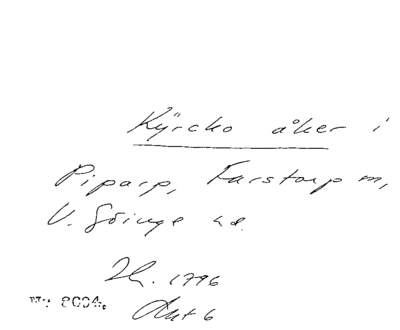 Kÿrcko åker i
Piparp, Farstorp m,
V. Göinge hd.
Lh. 1796
Akt 6
Ny 8004.